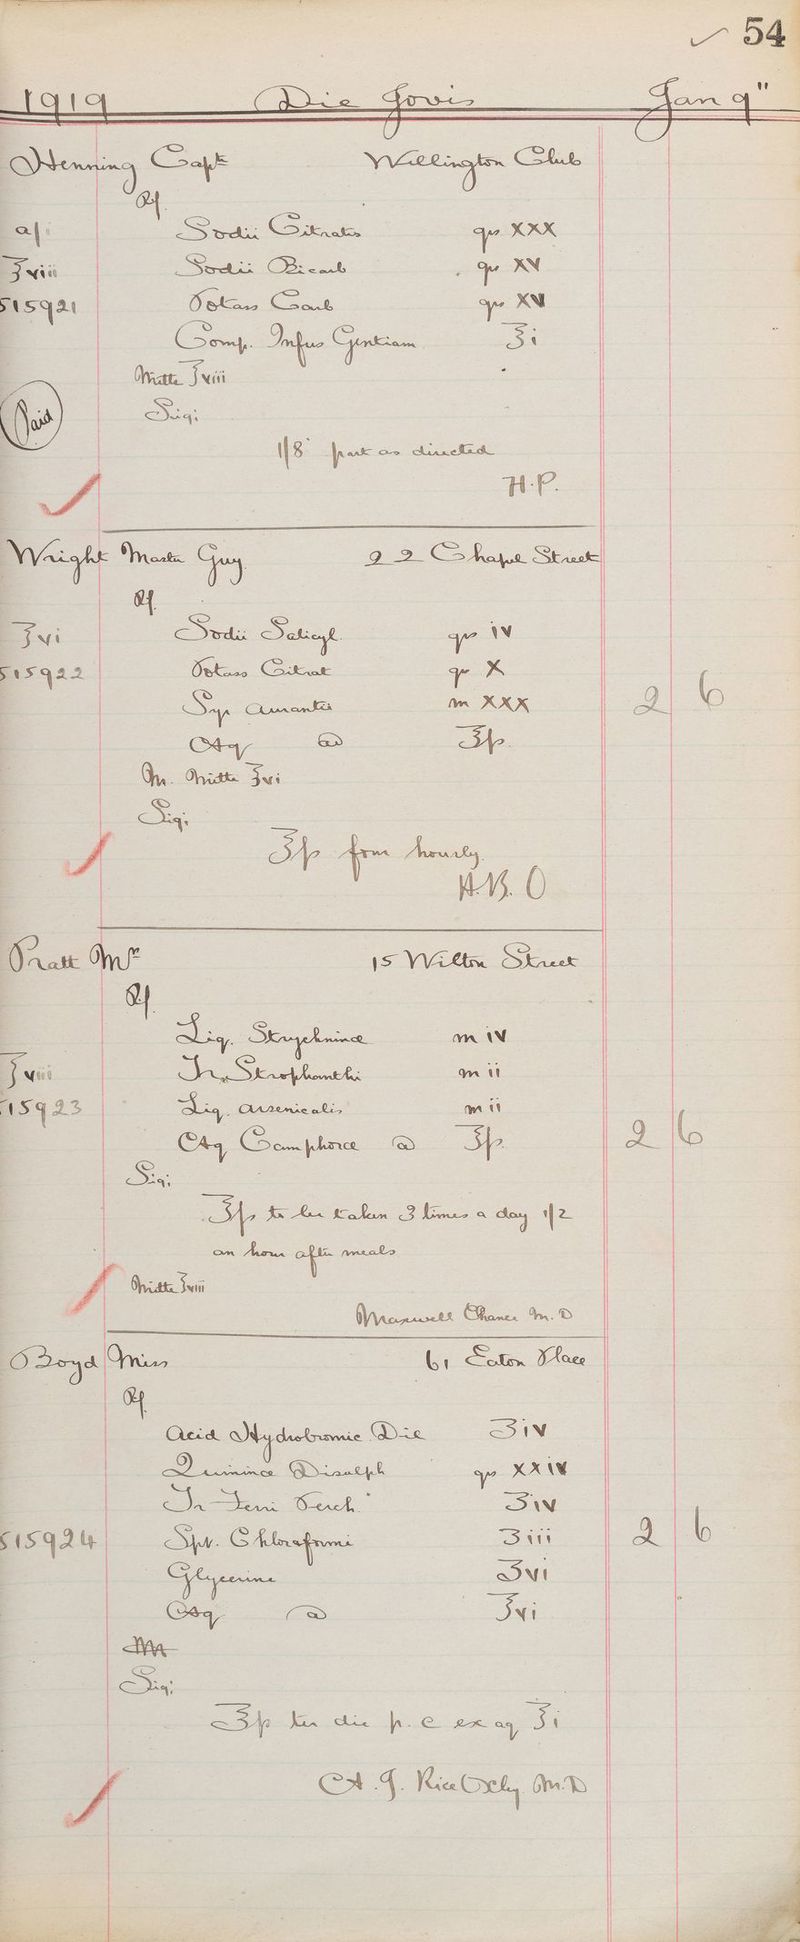 54
1919 Die Jovis Jan 9"
Henning Capt Wellington Club
Rx
Sodii Citratis grs XXX
Sodii Bicarb grs XV
℥viii
Potass Carb grs XV
515921
Comp. Infus Gentiam ℥i
Mitte ℥viii
Paid
Sig:
1/8 part as directed
H.P.
Wright Master Guy 22 Chapel Street
Rx
℥vi Sodii Salicyl. grs iv
515922 Potass Citrat gr X
Syr Aurantii m XXX 2 6
Aq ad ℥ß
M. Mitte ℥vi
Sig:
℥ß four hourly
H.B. O
Pratt Mr 15 Wilton Street
Rx
Liq. Strychninae m iv
℥viii Tr. Strophanthi m ii
15923 Liq. Arsenicalis m ii
Aq Camphorae ad ℥ß 2 6
Sig:
℥ß to be taken 3 times a day 1/2
an hour after meals
Mitte ℥viii
Maxwell Chance M.D
Boyd Miss 61 Eaton Place
Rx
Acid Hydrobromic Dil ʒiv
Quininae Disulph grs xxiv
Tr Ferri Perch ʒiv
515924 Spt. Chloroformi ʒiii 2 6
Glycerine ʒvi
Aq ad ℥vi
M
Sig:
℥ß ter die p.c ex aq ℥i
A.J. Rice Oxley M.D